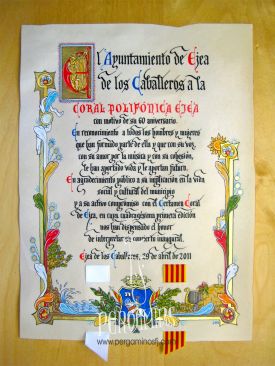 El Ayuntamiento de Ejea
de los Caballeros a la
CORAL POLIFÓNICA EJEA
con motivo de su 60 aniversario.
En reconocimiento a todos los hombres y mujeres
que han formado parte de ella y que con su voz,
con su amor por la música y con su cohesión,
le han aportado vida y le aportan futuro.
En agradecimiento público a su implicación en la vida
social y cultural del municipio
y a su activo compromiso con el Certamen Coral
de Ejea, en cuya cuadragésima primera edición
nos han dispensado el honor
de interpretar su concierto inaugural.
Ejea de los Caballeros, 29 de abril de 2011
PERGAMINOS
www.pergaminosfj.com